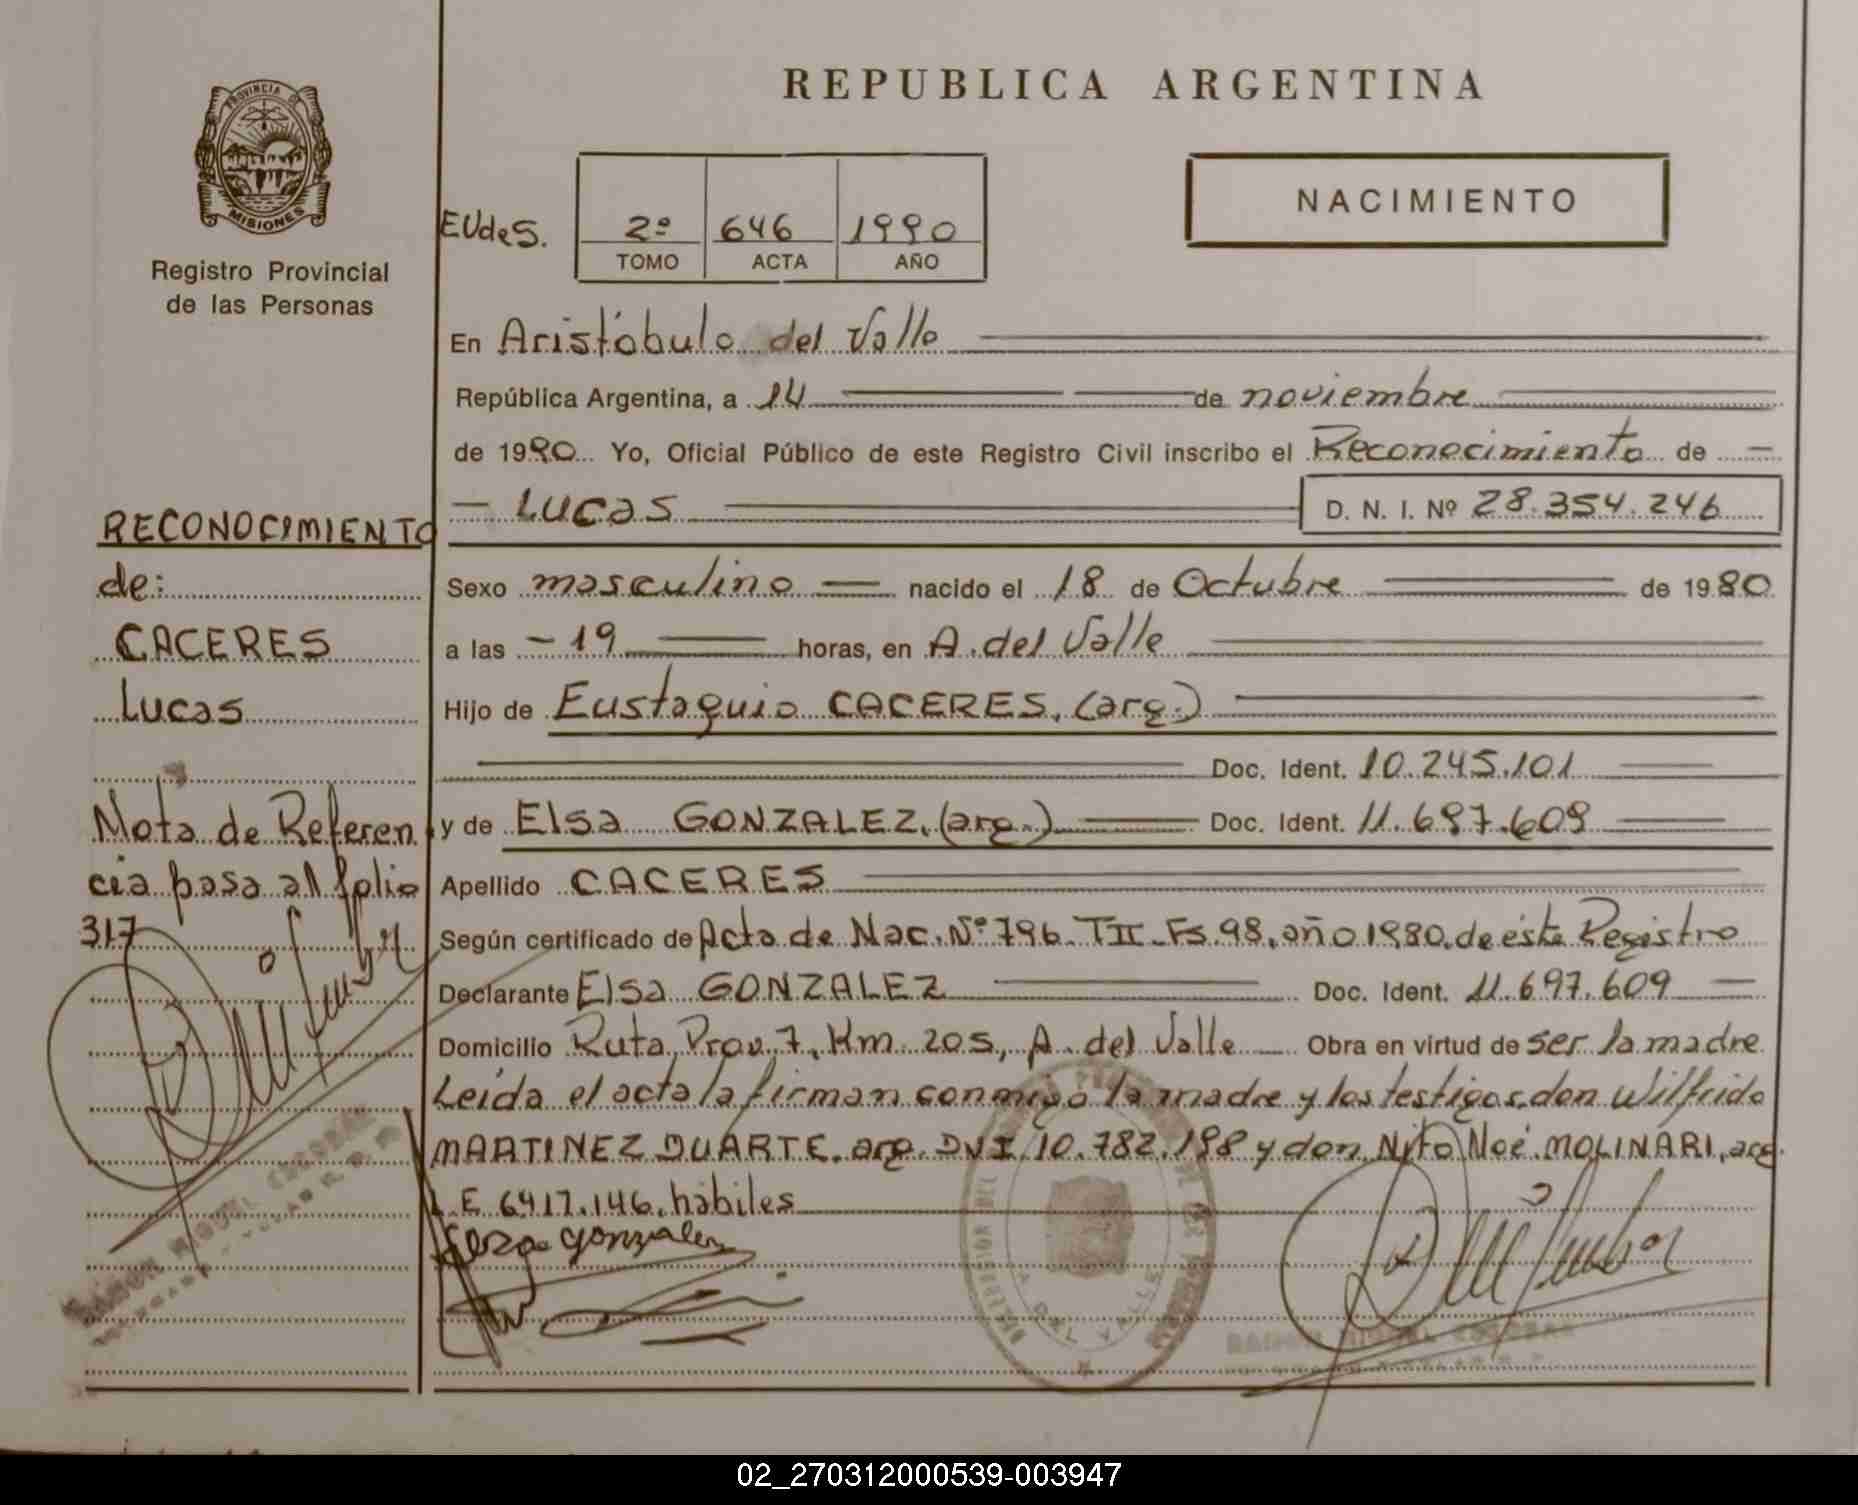 REPUBLICA ARGENTINA
PROVINCIA DE
MISIONES
Registro Provincial
de las Personas
EUdeS.
2º 646 1990
TOMO ACTA AÑO
NACIMIENTO
En Aristóbulo del Valle
República Argentina, a 14 de noviembre
de 1990 Yo, Oficial Público de este Registro Civil inscribo el Reconocimiento de
Lucas D. N. I. Nº 28.354.246
Sexo masculino nacido el 18 de Octubre de 1980
a las 19 horas, en A. del Valle
Hijo de Eustaquio CACERES, (arg.)
Doc. Ident. 10.245.101
y de Elsa GONZALEZ, (arg.) Doc. Ident. 11.697.609
Apellido CACERES
Según certificado de Acta de Nac. Nº 796. TII. Fs. 98, año 1980, de éste Registro
Declarante Elsa GONZALEZ Doc. Ident. 11.697.609
Domicilio Ruta Prov. 7, Km 205, A. del Valle Obra en virtud de ser la madre
Leída el acta la firman conmigo la madre y los testigos, don Wilfrido
MARTINEZ DUARTE, arg. DNI 10.782.198 y don Nito Noé MOLINARI, arg.
L.E 6417.146, hábiles
gonzalez
RECONOCIMIENTO
de:
CACERES
Lucas
Nota de Referen
cia pasa al folio
317
RAMON MIGUEL
A. DEL VALLE
RAMON MIGUEL
02_270312000539-003947